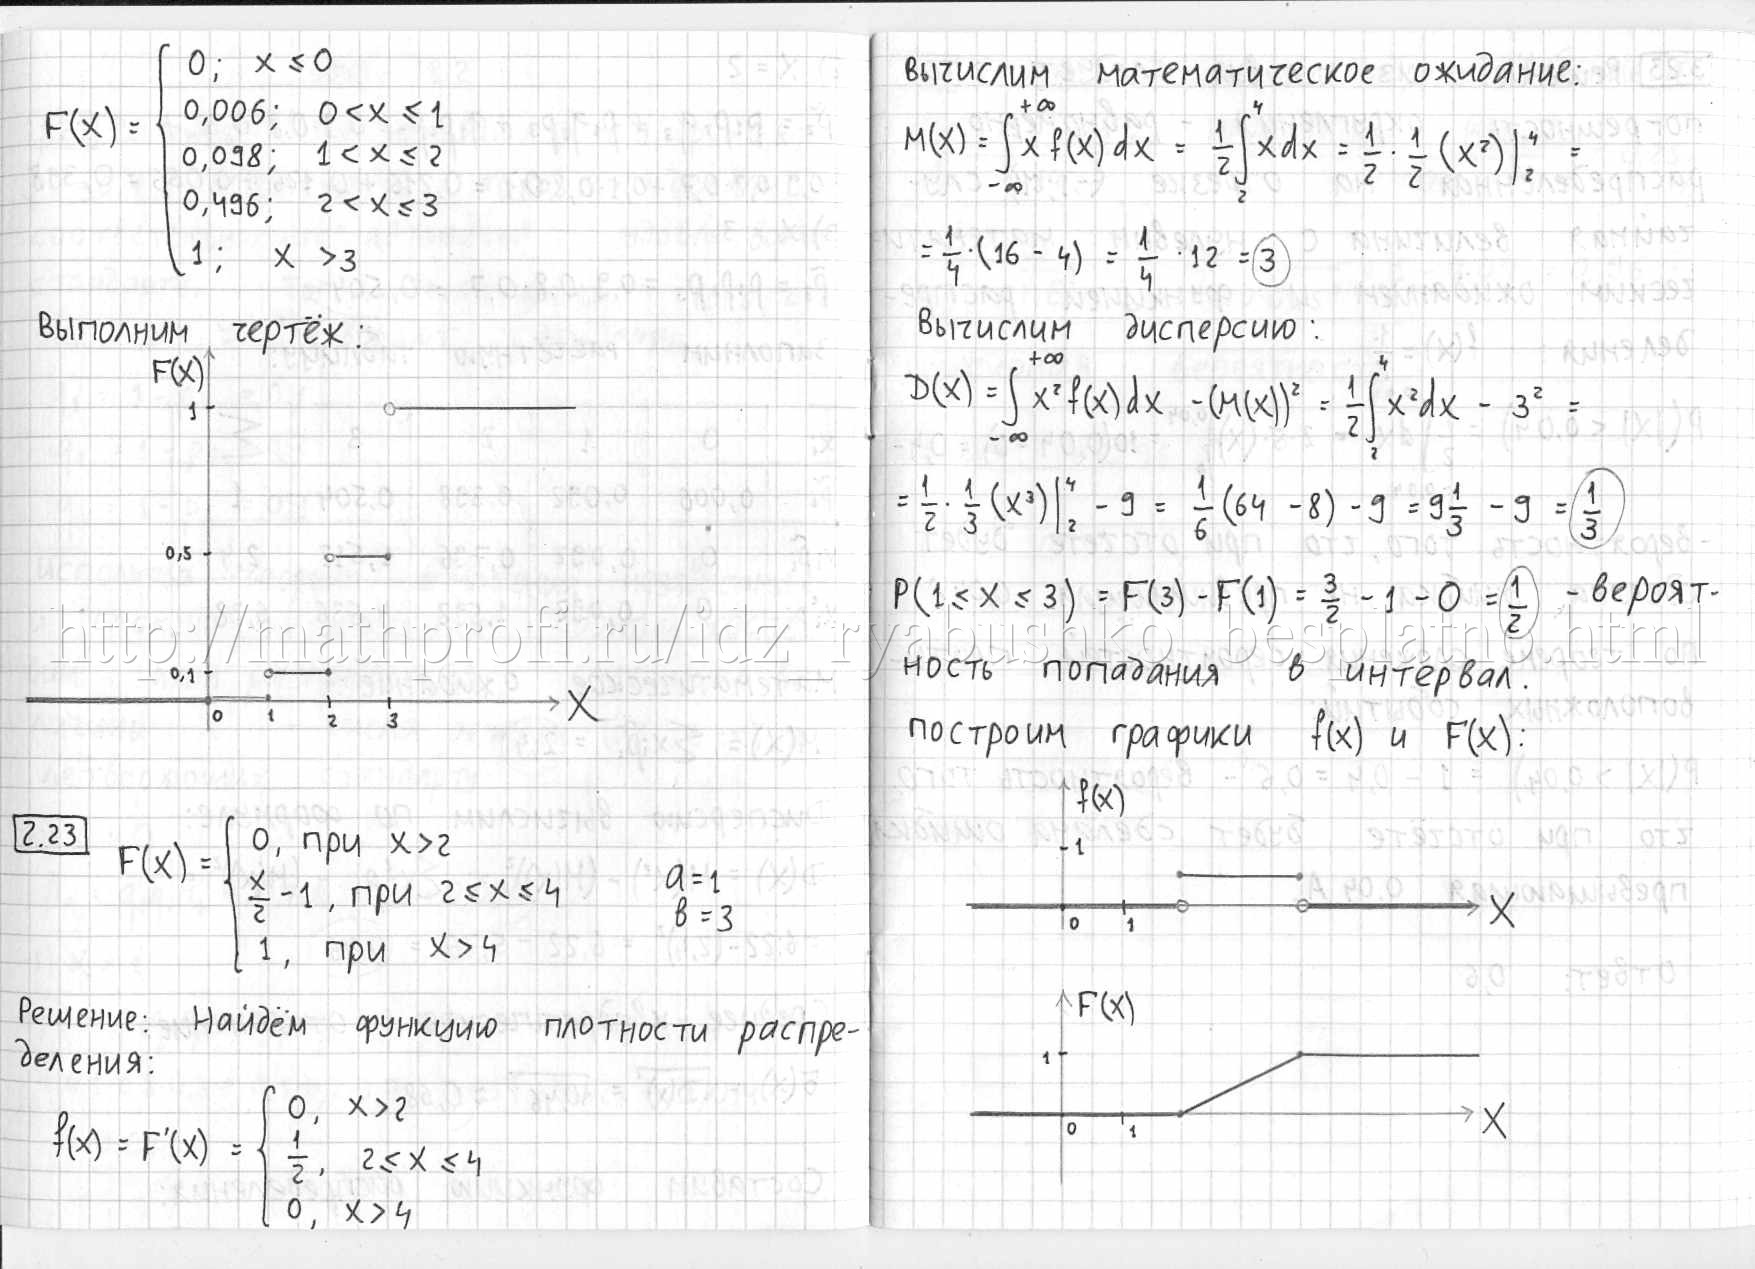 F(x) = { 0; x ≤ 0
0,006; 0 < x ≤ 1
0,098; 1 < x ≤ 2
0,496; 2 < x ≤ 3
1; x > 3
Выполним чертёж:
F(x)
1
0,5
0,1
0 1 2 3 X
2.23
F(x) = { 0, при x > 2
x/2 - 1, при 2 ≤ x ≤ 4
1, при x > 4
a = 1
в = 3
Решение: Найдём функцию плотности распре-
деления:
f(x) = F'(x) = { 0, x > 2
1/2, 2 ≤ x ≤ 4
0, x > 4
Вычислим математическое ожидание:
M(x) = ∫_{-∞}^{+∞} x f(x) dx = 1/2 ∫_2^4 x dx = 1/2 · 1/2 (x²)|_2^4 =
= 1/4 · (16 - 4) = 1/4 · 12 = 3
Вычислим дисперсию:
D(x) = ∫_{-∞}^{+∞} x² f(x) dx - (M(x))² = 1/2 ∫_2^4 x² dx - 3² =
= 1/2 · 1/3 (x³)|_2^4 - 9 = 1/6 (64 - 8) - 9 = 9 1/3 - 9 = 1/3
P(1 ≤ x ≤ 3) = F(3) - F(1) = 3/2 - 1 - 0 = 1/2 - вероят-
ность попадания в интервал.
построим графики f(x) и F(x):
f(x)
1
0 1 X
F(x)
1
0 1 X
http://mathprofi.ru/idz_ryabushko_besplatno.html